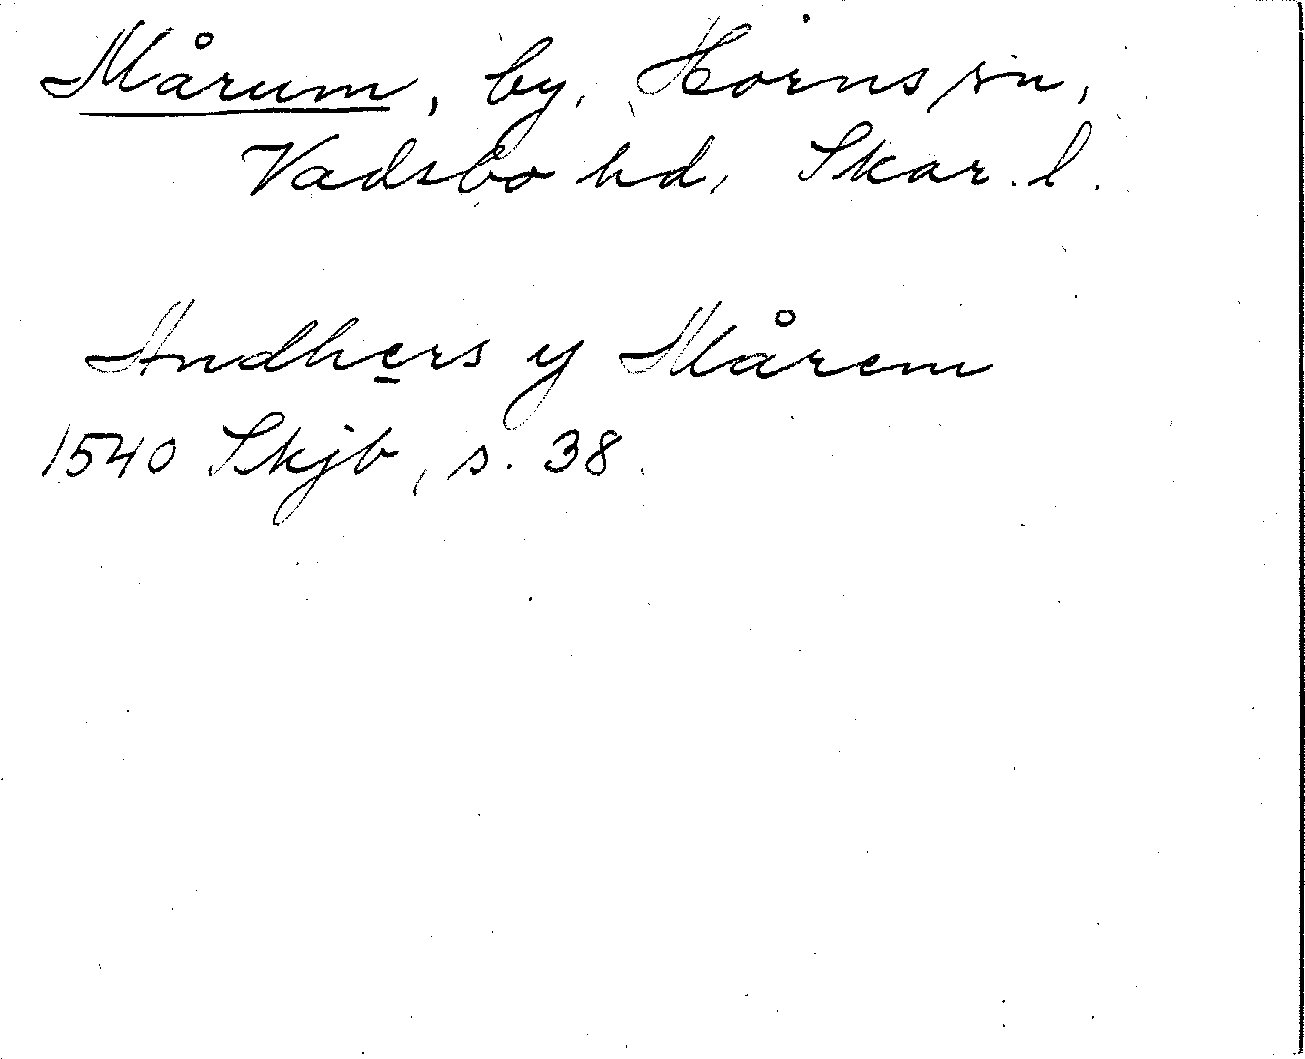 Mårum, by, Horns sn,
Vadsbo hd, Skar. l.
Andhers y Mårem
1540 Skjb, s. 38.